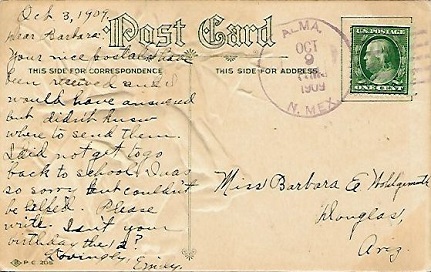 Oct 3, 1909.
Post Card
Dear Barbara:
Your nice postals have
THIS SIDE FOR CORRESPONDENCE
THIS SIDE FOR ADDRESS
been received and I
would have answered
but didn't know
where to send them.
I did not get to go
back to school. I was
so sorry but couldn't
be helped. Please
write. Isn't your
birthday the
Lovingly, Emily.
P C 205
ALMA,
OCT
9
1909
N. MEX.
U.S. POSTAGE
ONE CENT
Miss Barbara E
Douglas,
Ariz.